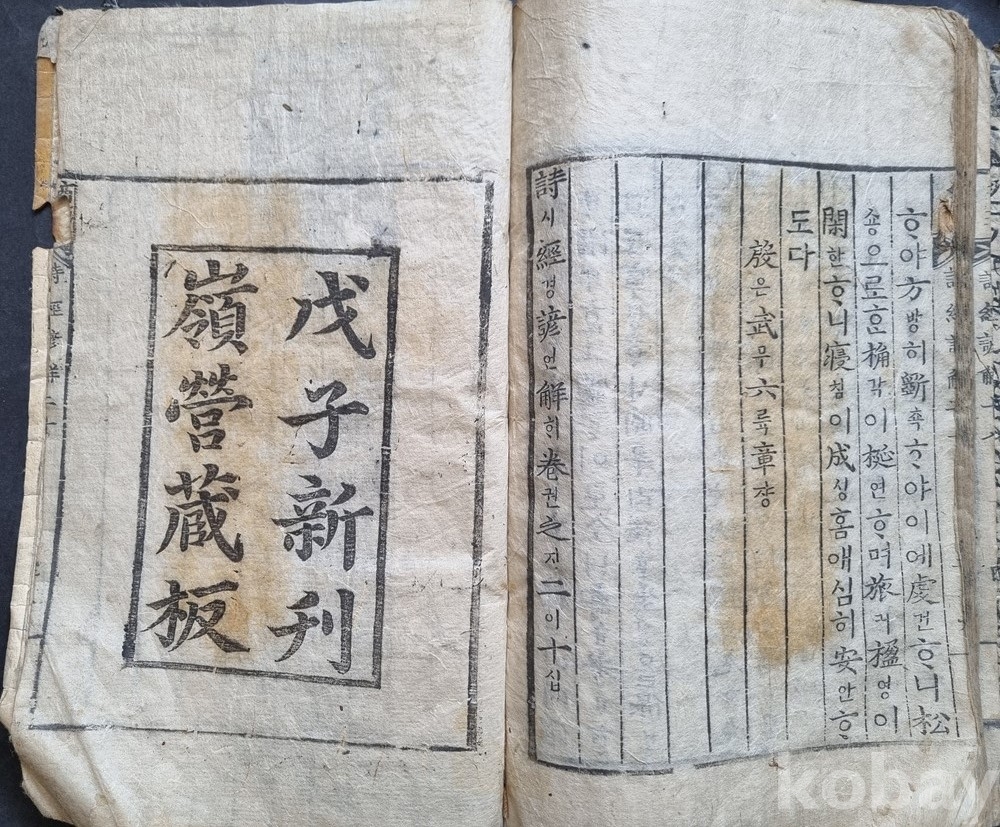 ᄒᆞ야方방히斲쵹ᄒᆞ야이에虔건ᄒᆞ니松
숑으로ᄒᆞᆫ桷각이梴연ᄒᆞ며旅려楹영이
閑한ᄒᆞ니寢침이成셩홈애심히安안ᄒᆞ
도다
殷은武무六륙章쟝
詩시經경諺언解ᄒᆡ卷권之지二이十십
戊子新刊
嶺營藏板
詩經諺解二十
kobay